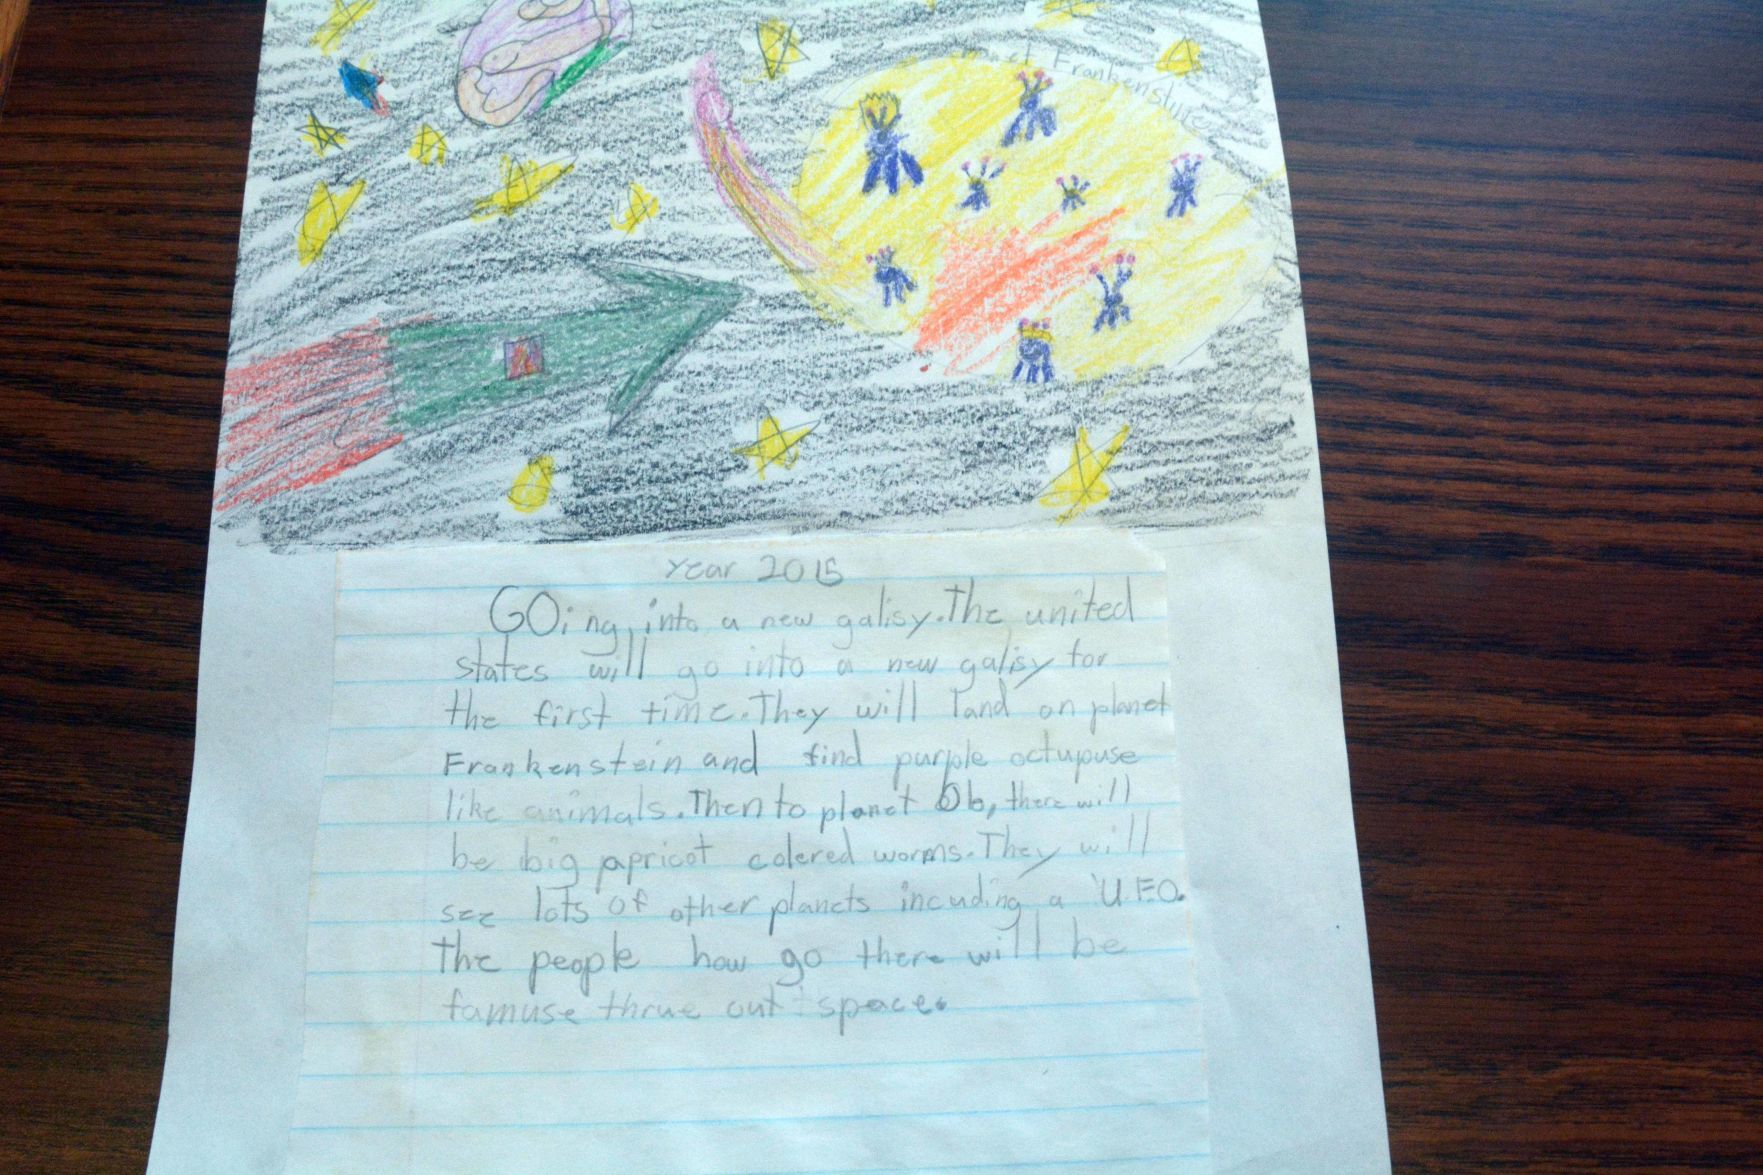 et Frankenstine
year 2015
GOing into a new galisy. The united
states will go into a new galisy for
the first time. They will land on planet
Frankenstein and find purple octupuse
like animals. Then to planet Ob, there will
be big apricot colered worms. They will
see lots of other planets incuding a U.F.O.
The people how go there will be
famuse thrue out space.